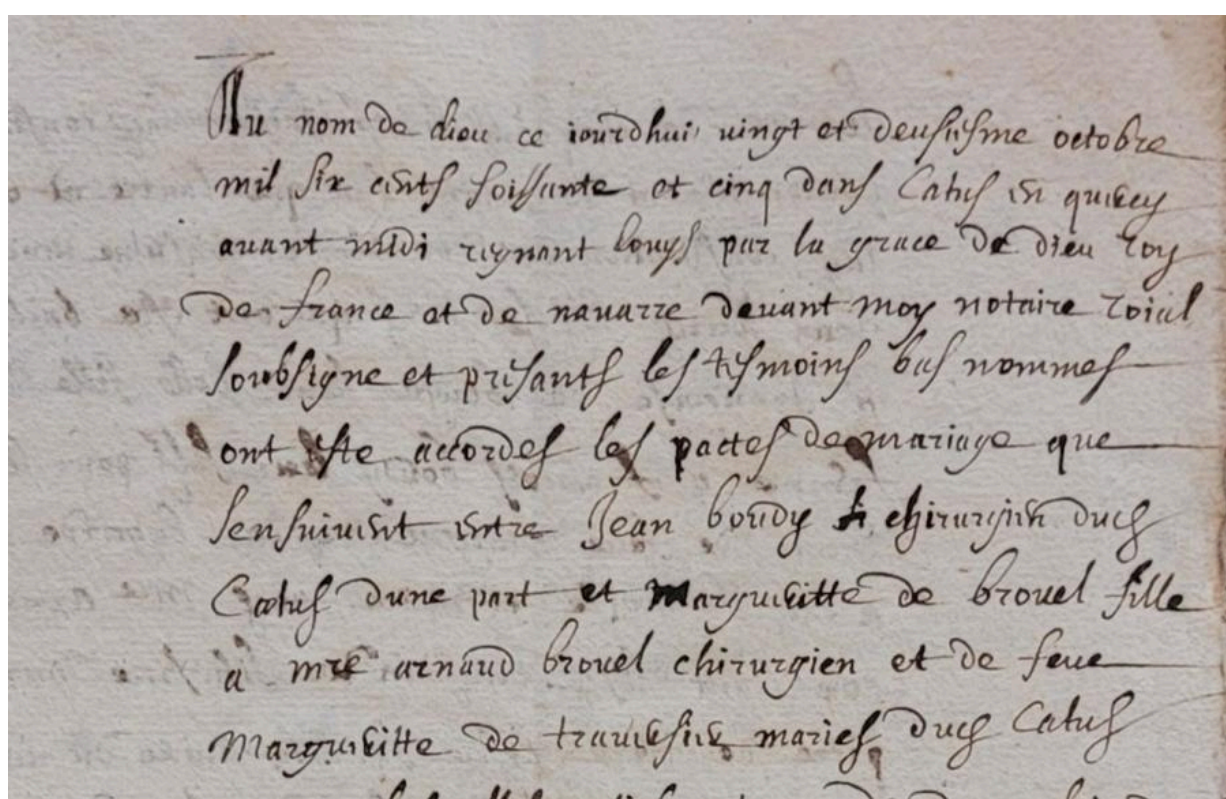 Au nom de dieu ce iourdhui uingt et deusiesme octobre
mil six cents soissante et cinq dans Catus en quercy
auant midi regnant louys par la grace de dieu roy
de france et de nauarre deuant moy notaire roial
soubsigne et presants les tesmoins bas nommes
ont este accordes les pactes de mariage que
sensuiuent entre Jean boudy chirurgien duch
Catus dune part et Margueritte de brouel fille
a mre arnaud brouel chirurgien et de feue
Margueritte de maries duch Catus